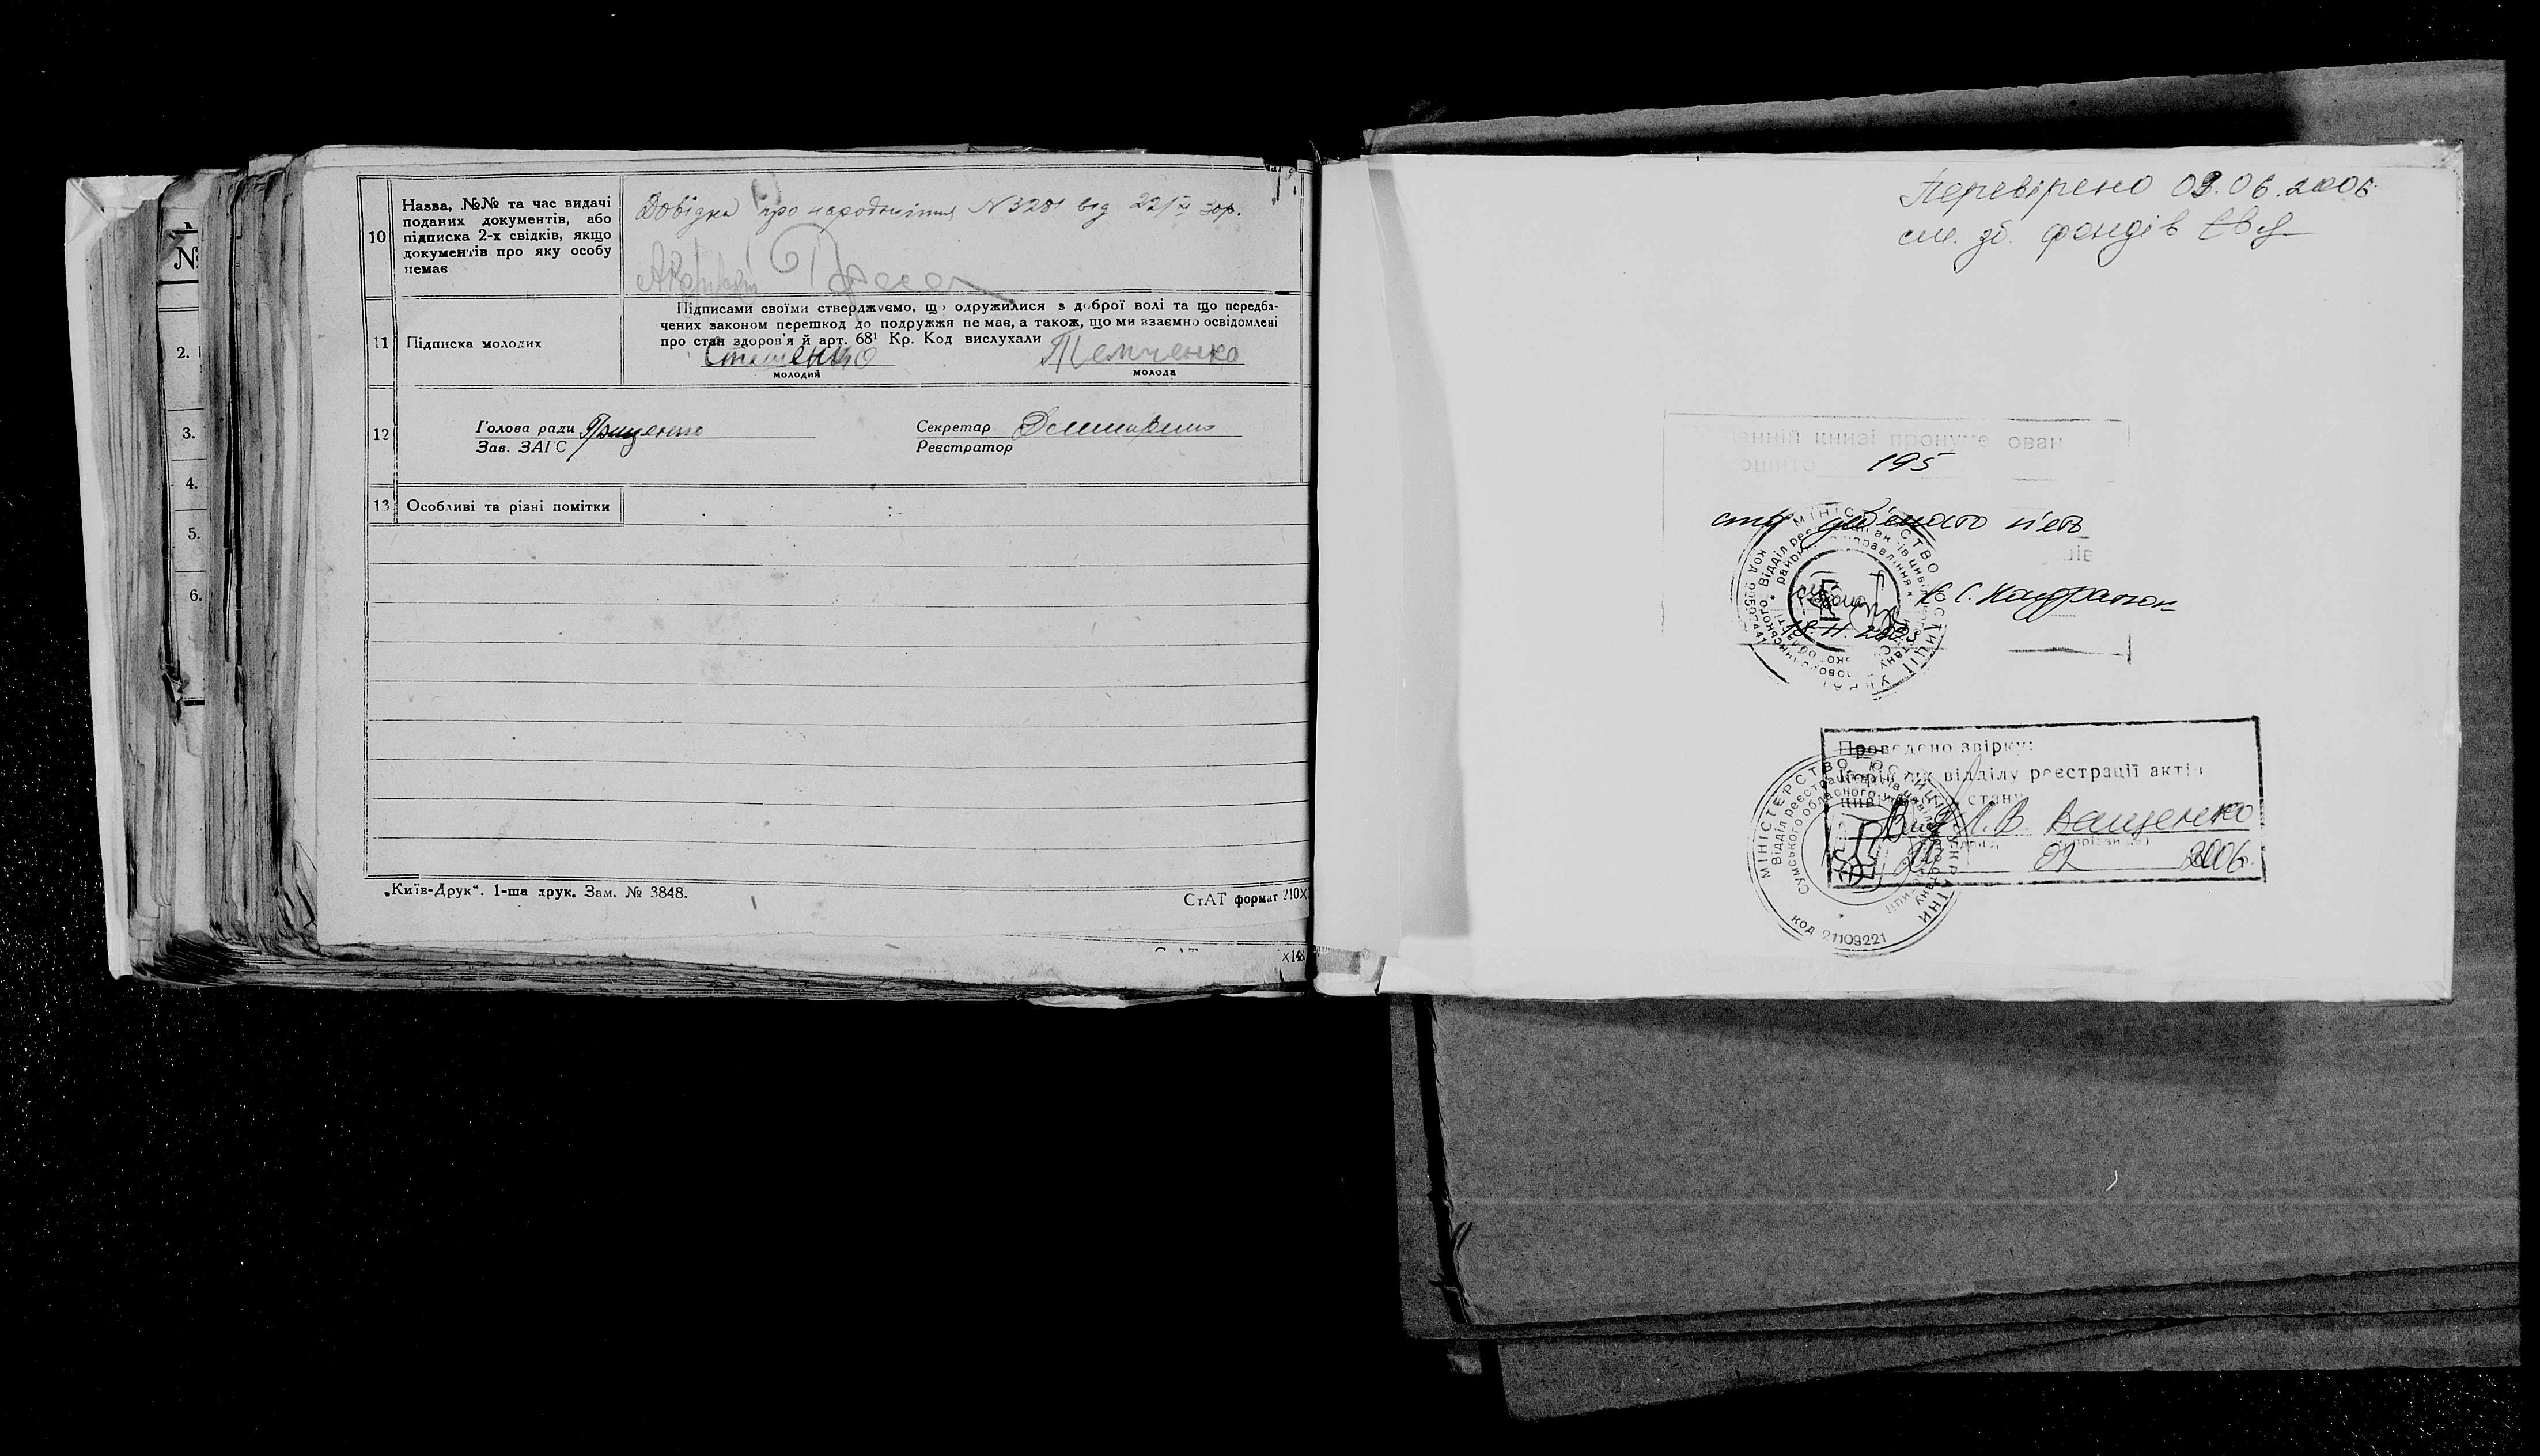 №
2.
3.
4.
5.
6.
10
Назва, №№ та час видачі
поданих документів, або
підписка 2-х свідків, якщо
документів про яку особу
немає
Довідка про народження N 3281 від 22/ 30р.
11
Підписка молодих
Підписами своїми стверджуємо, що одружилися з доброї волі та що передба-
чених законом перешкод до подружжя не має, а також, що ми взаємно освідомлені
про стан здоров'я й арт. 68¹ Кр. Код вислухали
Темченко
молодий
молода
12
Голова ради Грищенко
Зав. ЗАГС
Секретар
Реєстратор
13
Особливі та різні помітки
„Київ-Друк“. 1-ша друк. Зам. № 3848.
СтАТ формат 210×
×148
Перевірено 09.06.2006
см. зб. фондів
данній книзі пронумерован
ошито 195
сто дев'яносто п'ять
18.11.2005
МІНІСТЕРСТВО ЮСТИЦІЇ УКРАЇНИ
Проведено звірку:
Керівник відділу реєстрації актів
цивільного стану
Л.В. Ващенко
02 2006р.
МІНІСТЕРСТВО ЮСТИЦІЇ УКРАЇНИ
Відділ реєстрації актів цивільного стану
Сумського обласного управління юстиції
КОД 21109221